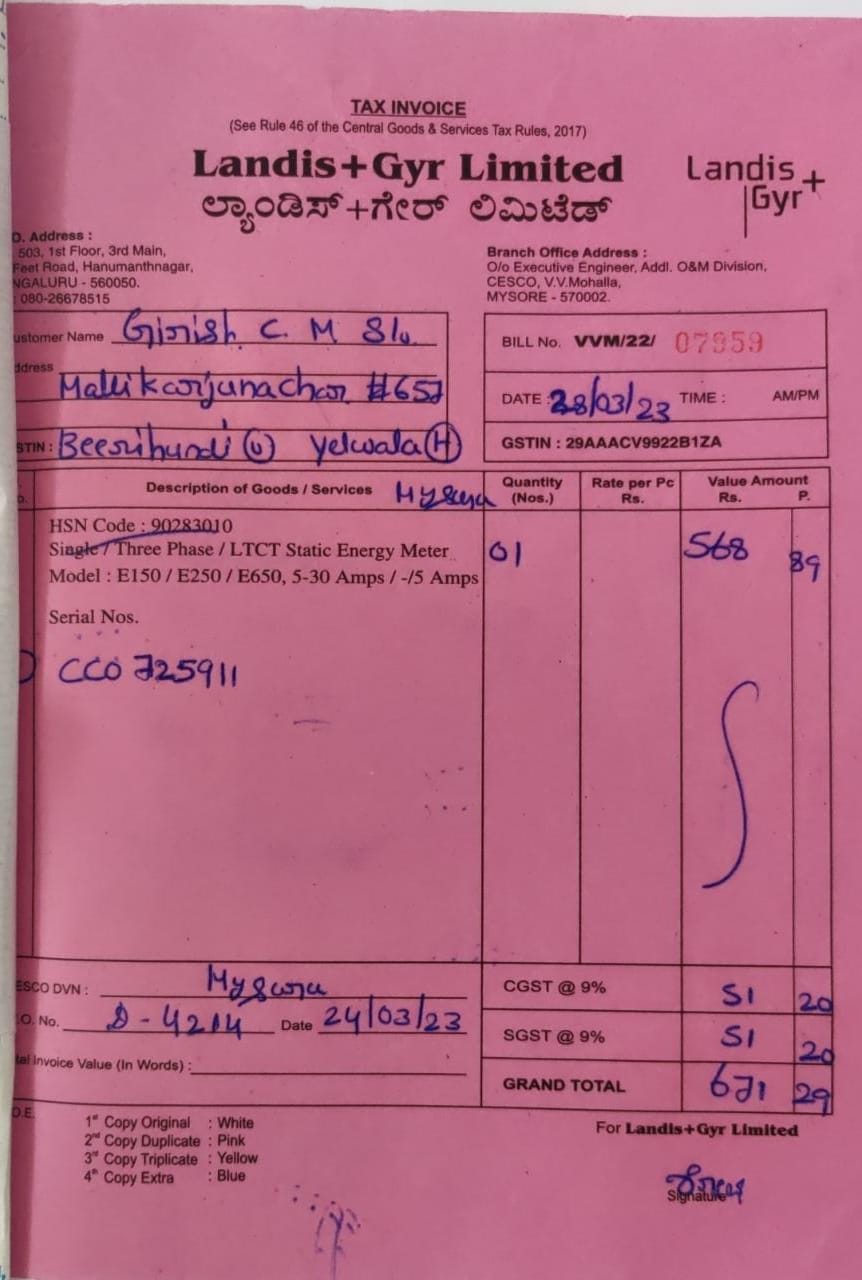 TAX INVOICE
(See Rule 46 of the Central Goods & Services Tax Rules, 2017)
Landis+Gyr Limited
ಲ್ಯಾಂಡಿಸ್+ಗೇರ್ ಲಿಮಿಟೆಡ್
Landis
Gyr+
D. Address :
503, 1st Floor, 3rd Main,
Feet Road, Hanumanthnagar,
NGALURU - 560050.
: 080-26678515
Branch Office Address :
O/o Executive Engineer, Addl. O&M Division,
CESCO, V.V.Mohalla,
MYSORE - 570002.
ustomer Name Girish. C. M S/o.
ddress
Mallikarjunachar #657
STIN : Beerihundi (v) Yelwala (H)
BILL No. VVM/22/ 07959
DATE : 28/03/23 TIME : AM/PM
GSTIN : 29AAACV9922B1ZA
o. Description of Goods / Services Mysuru Quantity (Nos.) Rate per Pc Rs. Value Amount Rs. P.
HSN Code : 90283010
Single / Three Phase / LTCT Static Energy Meter 01 568 89
Model : E150 / E250 / E650, 5-30 Amps / -/5 Amps
Serial Nos.
CCO 725911
ESCO DVN : Mysuru
.O. No. D - 4214 Date 24/03/23
tal Invoice Value (In Words) :
CGST @ 9% 51 20
SGST @ 9% 51 20
GRAND TOTAL 671 29
O.E.
1st Copy Original : White
2nd Copy Duplicate : Pink
3rd Copy Triplicate : Yellow
4th Copy Extra : Blue
For Landis+Gyr Limited
Signature